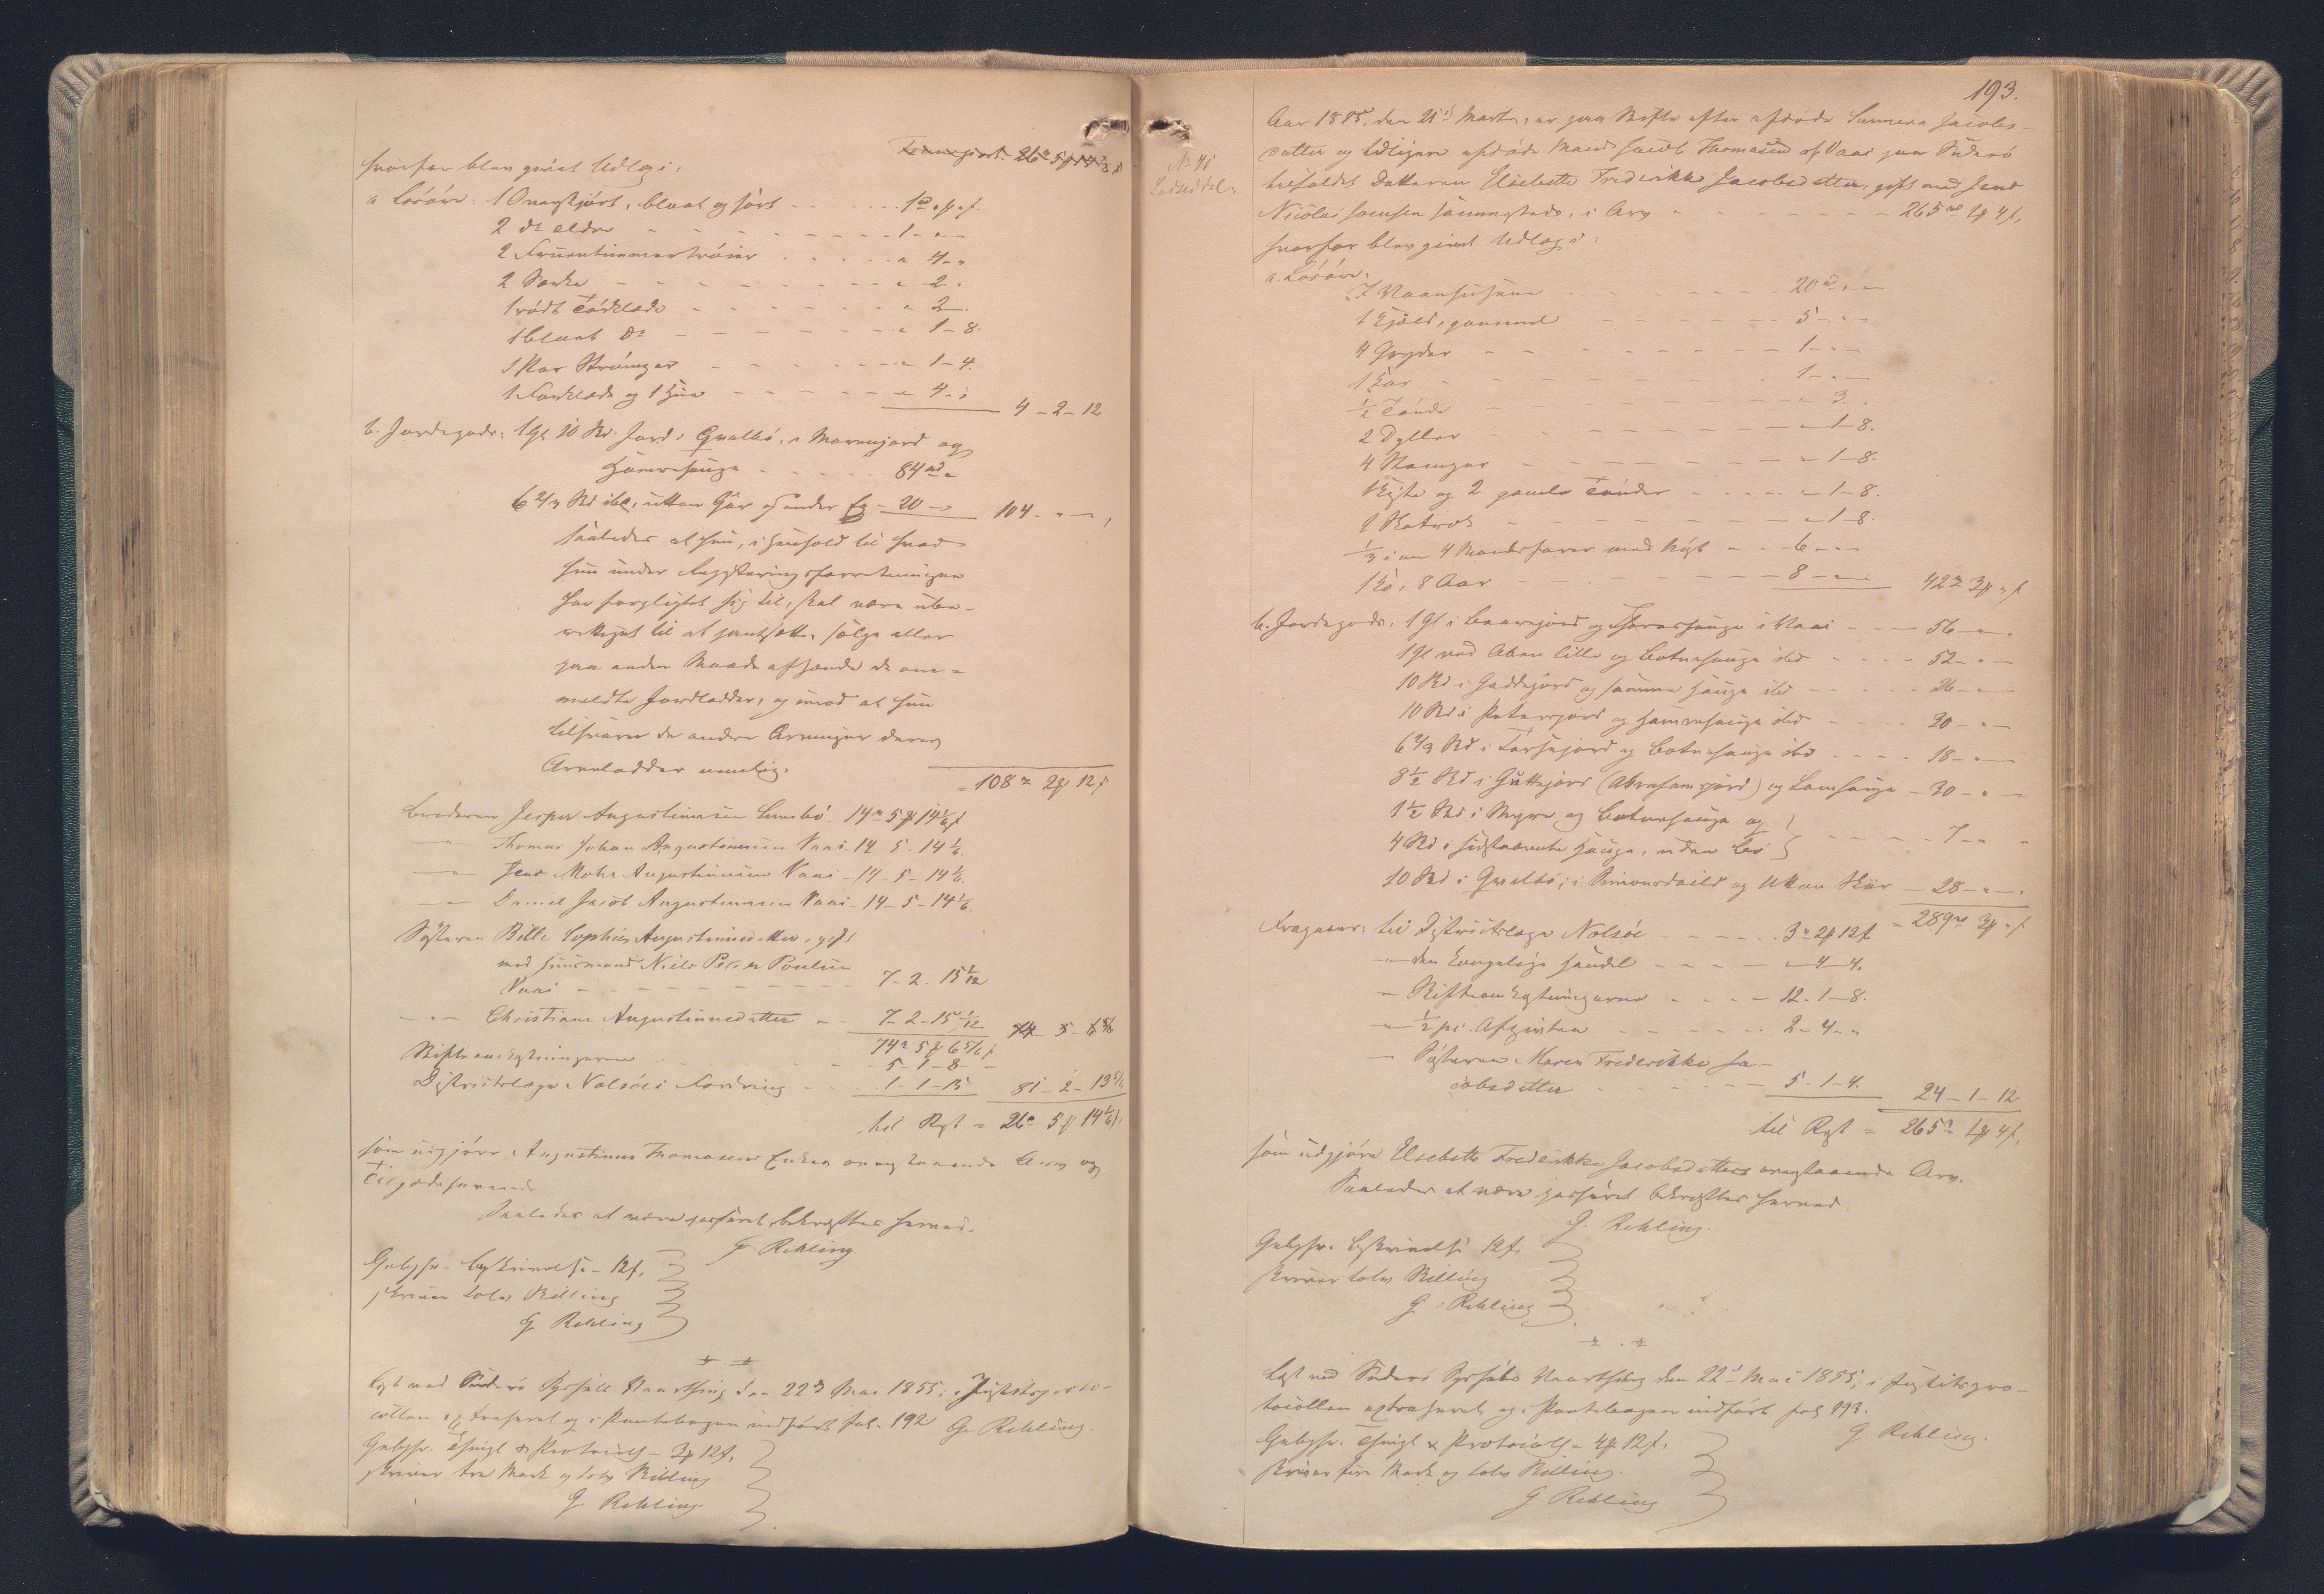 Transport. 26 rd 5 ₻ 14 1/6 s
hvorfor blev gjort Udlæg i:
a Lösöre: 1 Overskjört, blaat og sort - - - 1 rd " ₻ " s
2 do ældre - - - 1 - " -
2 Fruentimmertröier - - - " 4 - "
2 Særke - - - " 2 -
1 rödt Törklæde - - - " 2 -
1 blaat do - - - " 1 - 8.
1 Par Strömper - - - " 1 - 4.
1 Forklæde og 1 Hue - - - " 4 - " 4 - 2 - 12
b. Jordegods: 1 Gl 10 Sk. Jord i Qvalbö, i Morenjord og
Hamrehauge - - - 84 rd "
6 2/3 Sk ibd, uttan Gaar - 20 - " 104 - " - ",
saaledes at hun, i Henhold til hvad
hun under Registeringsforretningen
har forpligtet sig til, skal være ube-
rettiget til at pantsætte, sælge eller
paa anden Maade afhænde de om-
meldte Jordlodder, og imod at hun
tilsvarer de andre Arvinger deres
Arvelodder nemlig:
= 108 rd 2 ₻ 12 s
Broderen Jesper Augustinussen Sumbö 14 rd 5 ₻ 14 1/6 s
— " — Thomas Johan Augustinussen Vaai 14 5 - 14 1/6.
— " — Jens Mohr Augustinussen Vaai - 14 - 5 - 14 1/6.
— " — Daniel Jacob Augustinussen Vaai - 14 - 5 - 14 1/6.
Søsteren Bille Sophie Augustinusdatter, gift
med Huusmand Niels Peter Poulsen
Vaai - - - 7 - 2 - 15 1/12
— " — Christiane Augustinusdatter - - 7 - 2 - 15 1/12
74 rd 5 ₻ 6 5/6 s 74 - 5 - 6 5/6
Skifteomkostningerne - - - 5 - 1 - 8 -
Districtslæge Nolsöes Fordring - - - 1 - 1 - 15 81 - 2 - 13 5/6
til Rest = 26 rd 5 ₻ 14 1/6 s.
som udgjöre Augustinus Thomassens Enkes ovenstaaende Arv og
Tilgodehavende
Saaledes at være passeret bekræftes herved.
G Rehling.
Gebyhr. Beskrivelse - 12 s,
skriver tolv Skilling
G Rehling
Læst ved Suderö Syssels Vaarthing den 22 d Mai 1855; i Justitsproto-
collen extraheret og i Pantebogen indfört fol. 192 G. Rehling.
Gebyhr. Thingl & Protocoll - 3 ₻ 12 s,
skriver tre Mark og tolv Skilling
G. Rehling
193.
No 41
Lodseddel.
Aar 1855, den 21 d Marts, er paa Skifte efter afdöde Sunneva Jacobs-
datter og tidligere afdöde Mand Jacob Thomassen af Vaai paa Suderö
tilfaldet Datteren Elsebette Frederikke Jacobsdatter, gift med Jens
Nicolai Joensen sammesteds, i Arv - - - 265 rd 1 ₻ 4 s,
hvorfor blev gjort Udlæg i:
a. Lösöre:
7 - - - 20 rd " -
1 Kjöld, gammel - - - 5 - " -
4 Gryder - - - 1 - " -
1 Kar - - - 1 - " -
1/2 Tönde - - - " 3 - .
2 Dyller - - - " 1 - 8.
4 Stænger - - - " 1 - 8.
1 Kiste og 2 gamle Tönder - - - " 1 - 8.
2 - - - " 1 - 8.
1/3 i en 4 Mandsfarer med Nöst - - 6 - " -
1 Ko, 8 Aar - - - 8 - " - 42 rd 3 ₻ " s
b. Jordegods: 1 Gl i Baarsjord og Thorarhauge i Vaai - - - 56 - " .
1 Gl ved Aaen lille og Botnehauge ibd - - - 52 - " -
10 Sk i Gaddejord og samme Hauge ibd - - - 26 - " -
10 Sk i Petersjord og Hamrehauge ibd - - - 30 - " -
6 2/3 Sk i Torsejord og Botnehauge ibd - - - 18 - " -
8 1/2 Sk i Guttejord (Abrahamsjord) og Lamhauge - 30 - " -
1 1/2 Sk i Myre og Botnehauge og
4 Sk i sidstnævnte Hauge, uden Bö - - - 7 - " "
10 Sk i Qvalbö; i Simonsdeild og Uttan Skar - 28 - " - .
= 289 rd 3 ₻ " s
Fragaaer: til Districtslæge Nolsöe - - - 3 rd 2 ₻ 12 s
— " den kongelige Handel - - - " 4 - 4.
— Skifteomkostningerne - - - 12 - 1 - 8.
— " 1/2 pc. Afgivten - - - 2 - 4 - "
— Søsteren Maren Frederikke Ja-
cobsdatter - - - 5 - 1 - 4. 24 - 1 - 12
til Rest = 265 rd 1 ₻ 4 s,
som udgjöre Elsebette Frederikke Jacobsdatters ovenstaaende Arv.
Saaledes at være passeret bekræftes herved.
G. Rehling.
Gebyhr. Beskrivelse 12 s,
skriver tolv Skilling
G. Rehling
Læst ved Suderö Syssels Vaarthing den 22 d Mai 1855; i Justitspro-
tocollen extraheret og i Pantebogen indfört fol 193.
G Rehling.
Gebyhr. Thingl & Protocoll = 4 ₻ 12 s,
skriver fire Mark og tolv Skilling.
G. Rehling